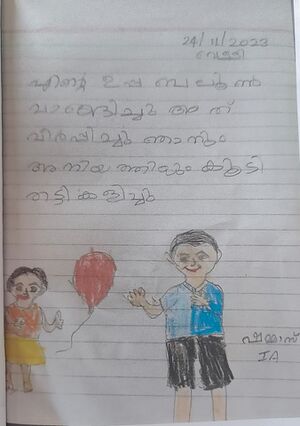 24/11/2023
വെള്ളി
എന്റെ ഉപ്പ ബലൂൺ
വാങ്ങിച്ചു അത്
വീർപ്പിച്ചു ഞാനും
അനിയത്തിയും കൂടി
തട്ടി കളിച്ചു
ഷമ്മാസ്
IA